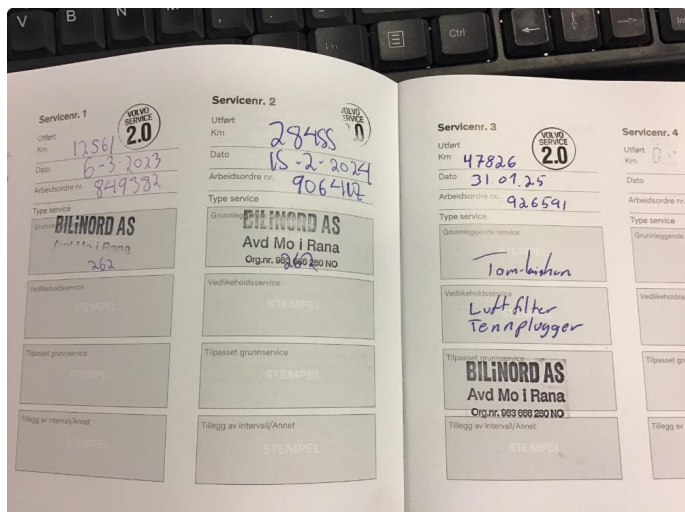 V B N M
Ctrl
Servicenr. 1
VOLVO SERVICE 2.0
Utført
Km 12561
Dato 6-3-2023
Arbeidsordre nr. 849382
Type service
BILiNORD AS
Avd Mo i Rana
262
Vedlikeholdsservice
STEMPEL
Tilpasset grunnservice
STEMPEL
Tillegg av intervall/Annet
STEMPEL
Servicenr. 2
VOLVO
Utført
Km 28455
Dato 15-2-2024
Arbeidsordre nr.
Type service
BILiNORD AS
Avd Mo i Rana
Org.nr. 983 666 260 NO
262
Vedlikeholdsservice
STEMPEL
Tilpasset grunnservice
STEMPEL
Tillegg av intervall/Annet
STEMPEL
Servicenr. 3
VOLVO SERVICE 2.0
Utført
Km 47826
Dato 31.01.25
Arbeidsordre nr. 926591
Type service
Grunnleggende service
Vedlikeholdsservice
Luftfilter
Tennplugger
Tilpasset grunnservice
BILiNORD AS
Avd Mo i Rana
Tillegg av intervall/Annet
STEMPEL
Servicenr. 4
Utført
Km
Dato
Arbeidsordre nr.
Type service
Grunnleggende